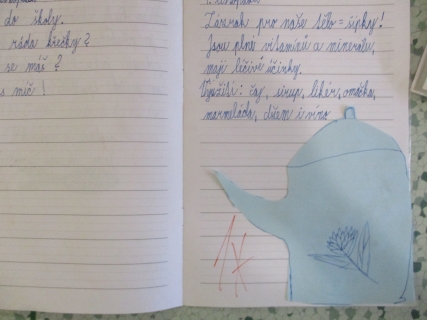 do školy.
ráda křečky?
se máš?
s míč!
Zázrak pro naše tělo = šípky!
Jsou plné vitamínů a minerálů,
mají léčivé účinky.
Využití: čaj, sirup, likér, omáčka,
marmeláda, džem i víno
1*